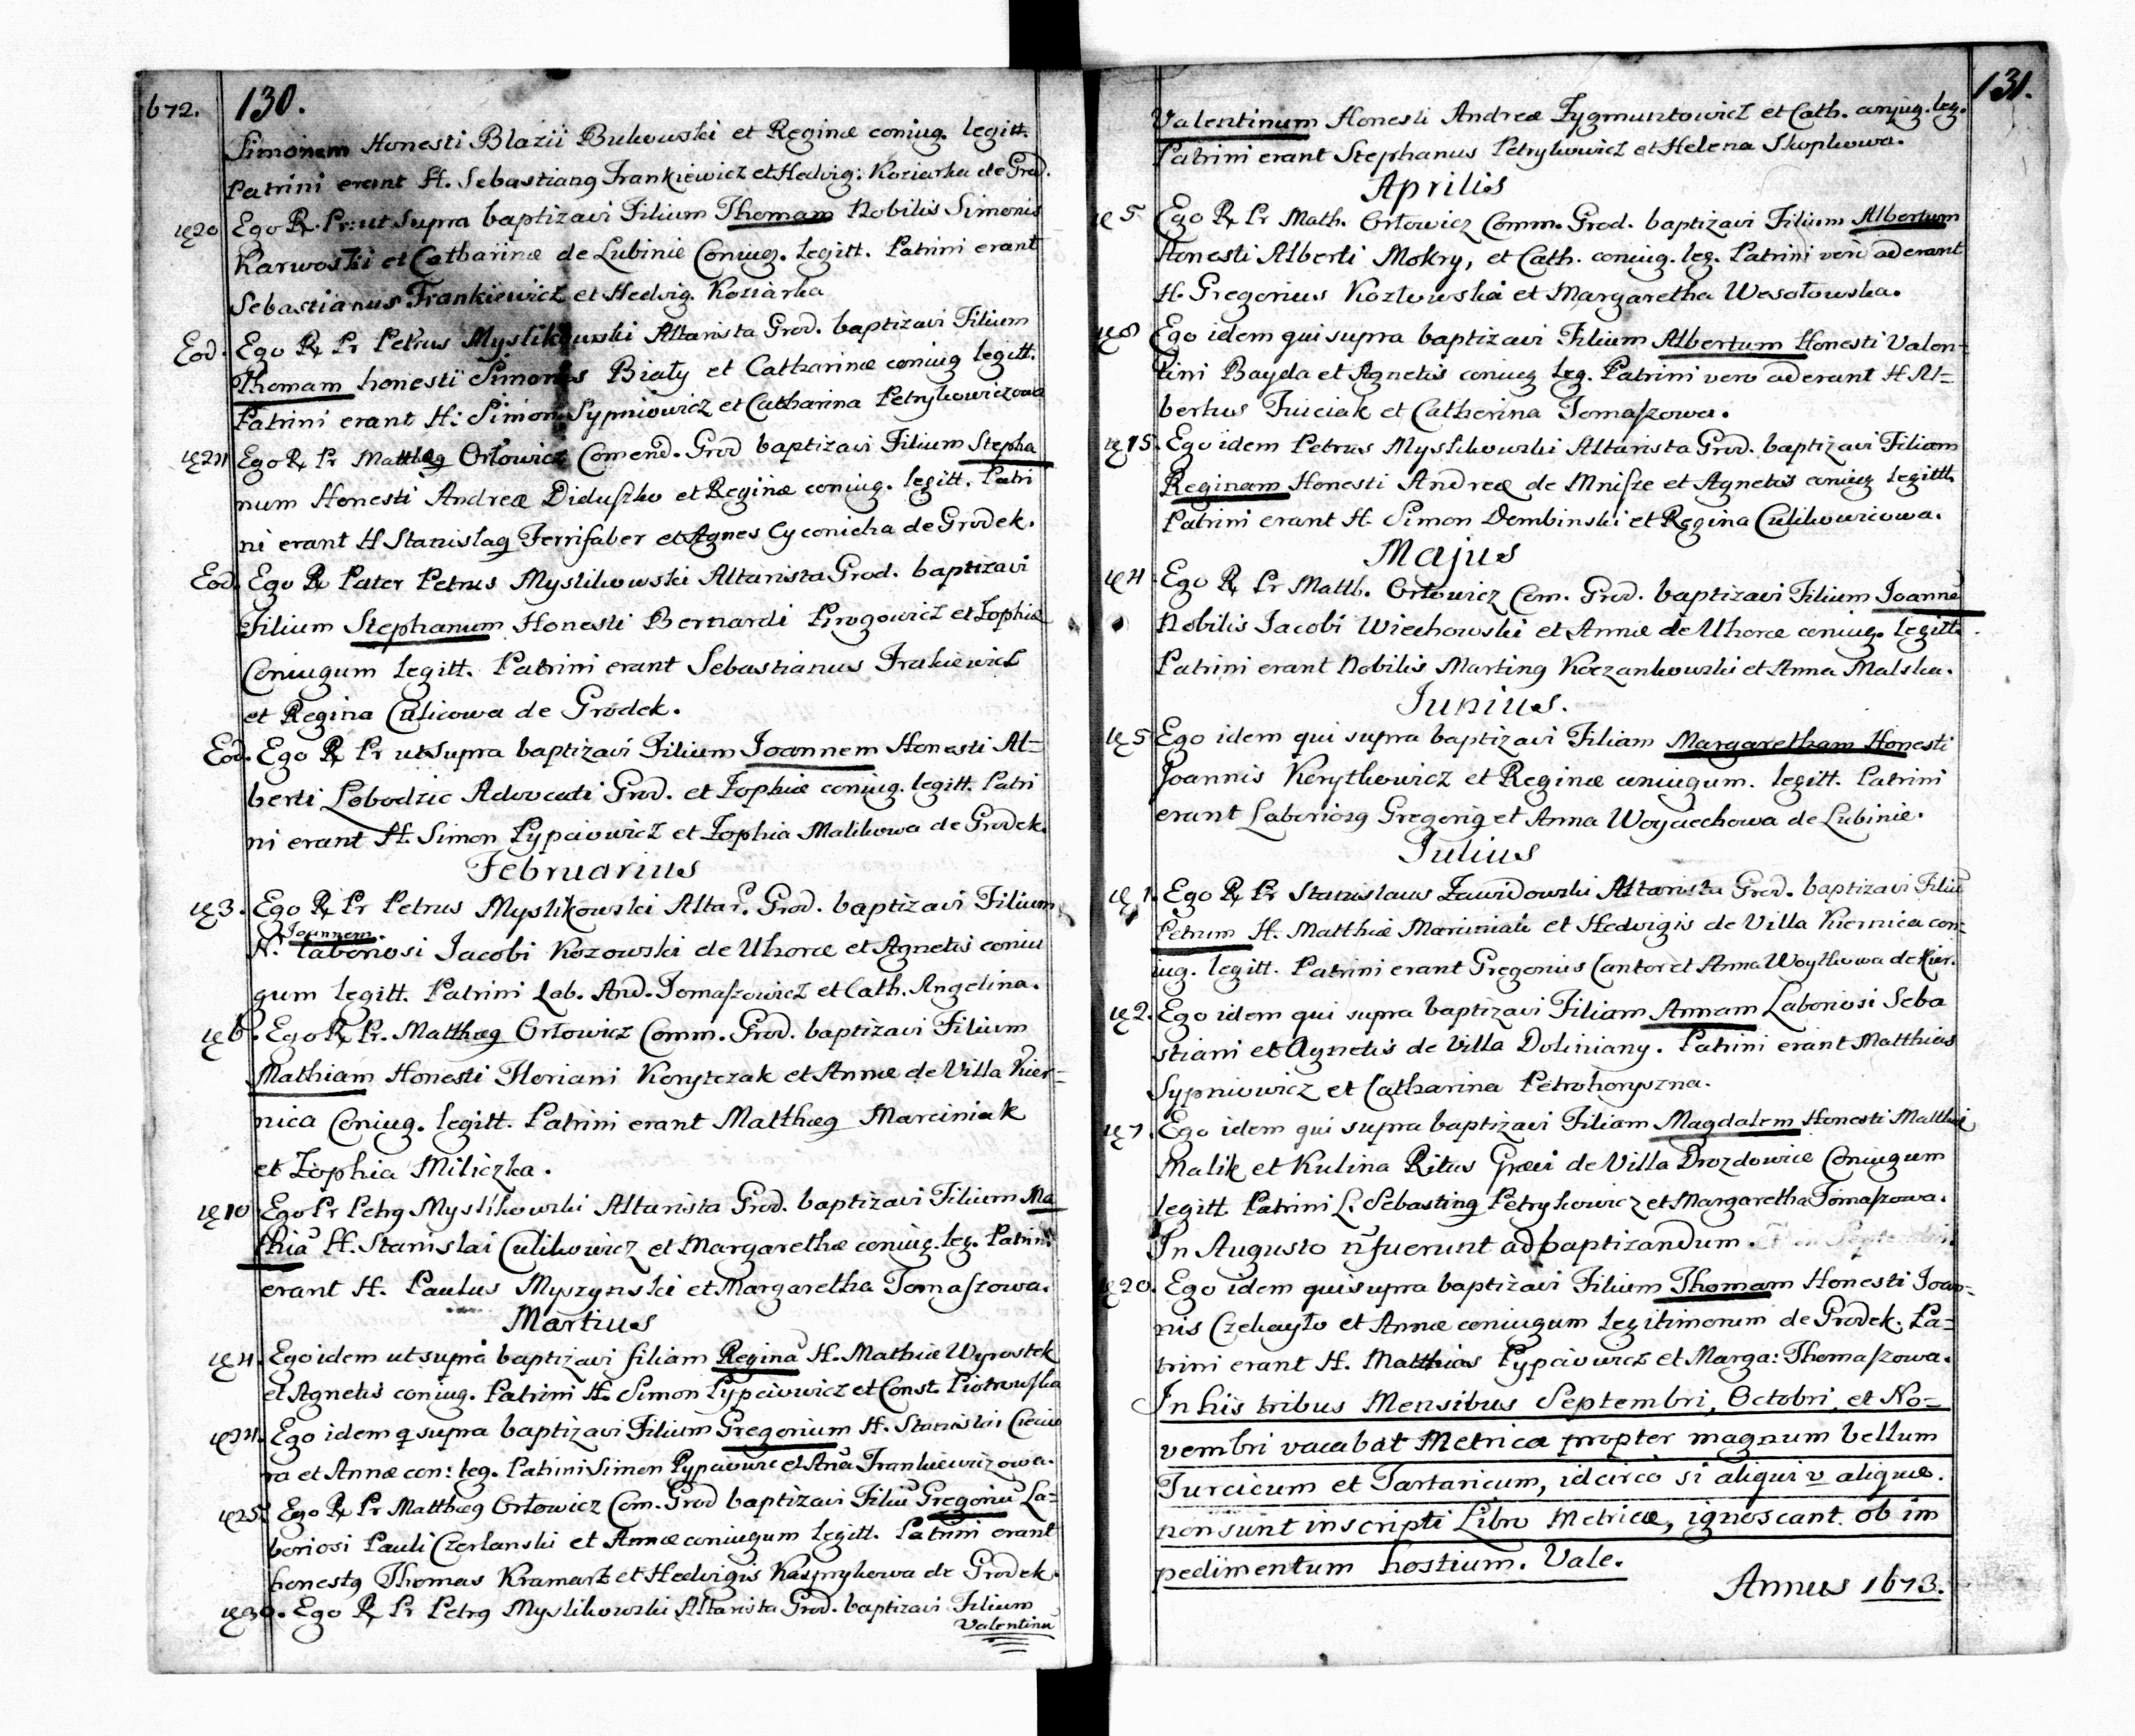 672. 130.
Simonem Honesti Blazii Bukowski et Reginæ coniug. legitt.
Patrini erant H. Sebastiang Frankiewicz et Hedvig: Koziarka de Grod.
20 Ego R. Pr: ut supra baptizavi Filium Thomam Nobilis Simonis
Karwoski et Catharinæ de Lubinie Coniug. legitt. Patrini erant
Sebastianus Frankiewicz et Hedvig. Koziarka
Eod. Ego R Pr Petrus Myslikowski Altarista Grod. baptizavi Filium
Thomam honesti Simonis Biały et Catharinæ coniug legitt.
Patrini erant H: Simon Sypniowicz et Catharina Petrykowiczowa
Ego R Pr Matthæg Orłowicz Comend. Grod baptizavi Filium Stepha
num Honesti Andreæ Dieduszko et Reginæ coniug. legitt. Patri
ni erant H Stanislag Ferrifaber et Agnes Cyconicha de Grodek.
Eod. Ego R Pater Petrus Myslikowski Altarista Grod. baptizavi
Filium Stephanum Honesti Bernardi Pirogowicz et Zophiæ
Coniugum legitt. Patrini erant Sebastianus Frakiewicz
et Regina Culicowa de Grodek.
Eod. Ego R Pr ut supra baptizavi Filium Joannem Honesti Al=
berti Lobodzic Advocati Grod. et Zophiæ coniug. legitt. Patri
ni erant H. Simon Pypciowicz et Zophia Malikowa de Grodek.
Februarius
3. Ego R Pr Petrus Myslikowski Altar. Grod. baptizavi Filium
Joannem.
H. laboriosi Jacobi Kozowski de Uhorce et Agnetis coniu
gum legitt. Patrini Lab. And. Tomaszowicz et Cath. Angelina.
6. Ego R Pr. Matthæg Orłowicz Comm. Grod. baptizavi Filium
Mathiam Honesti Floriani Korytczak et Annæ de Villa Kier=
nica Coniug. legitt. Patrini erant Matthæg Marciniak
et Zophia Miliczka.
10 Ego Pr Petrg Myslikowski Altarista Grod. baptizavi Filium Ma
thiā H. Stanislai Culikowicz et Margarethæ coniug. leg. Patrini
erant H. Paulus Myszynski et Margaretha Tomaszowa.
Martius
4. Ego idem ut supra baptizavi filiam Reginā H. Mathiæ Wyrostek
et Agnetis coniug. Patrini H. Simon Pypciowicz et Const. Piotrowska
24. Ego idem q supra baptizavi Filium Gregorium H. Stanislai
ra et Annæ con: leg. Patrini Simon Pypciowic et Anā Frankiewiczowa.
25. Ego R Pr Matthæg Orłowicz Com. Grod baptizavi Filiū Gregoriū La=
boriosi Pauli Czerlanski et Annæ coniugum legitt. Patrini erant
honestg Thomas Kramarz et Hedvigis Kasprykowa de Grodek.
30. Ego R Pr Petrg Myslikowski Altarista Grod. baptizavi Filium
Valentinū
131.
Valentinum Honesti Andreæ Zygmuntowicz et Cath. coniug. leg.
Patrini erant Stephanus Petrykowicz et Helena Skopkowa.
Aprilis
5 Ego R Pr Math. Orłowicz Comm. Grod. baptizavi Filium Albertum
Honesti Alberti Mokry, et Cath. coniug. leg. Patrini vero aderant
H. Gregorius Kozłowski et Margaretha Wesołowska.
8 Ego idem qui supra baptizavi Filium Albertum Honesti Valen=
tini Bayda et Agnetis coniug leg. Patrini vero aderant H Al=
bertus Juiciak et Catherina Tomaszowa.
15. Ego idem Petrus Myslikowski Altarista Grod. baptizavi Filiam
Reginam Honesti Andreæ de Mnisze et Agnetis coniug legitt.
Patrini erant H. Simon Dembinski et Regina Culikowicowa.
Majus
4. Ego R Pr Matth. Orłowicz Com. Grod. baptizavi Filium Joannē
Nobilis Jacobi Wiechowski et Annæ de Uhorce coniug. legitt.
Patrini erant Nobilis Marting Korzankowski et Anna Malska.
Junius.
5 Ego idem qui supra baptizavi Filiam Margaretham Honesti
Joannis Korytkowicz et Reginæ coniugum. legitt. Patrini
erant Laboriosg Gregorig et Anna Woyciechowa de Lubinie.
Julius
1. Ego R Pr Stanislaus Zawidowski Altarista Grod. baptizavi Filiū
Petrum H. Matthiæ Marciniak et Hedvigis de Villa Kiernica con=
iug. legitt. Patrini erant Gregorius Cantor et Anna Woytkowa de Kier.
2. Ego idem qui supra baptizavi Filiam Annam Laboriosi Seba
stiani et Agnetis de Villa Doliniany. Patrini erant Matthias
Sypniowicz et Catharina Petrohoryszna.
7. Ego idem qui supra baptizavi Filiam Magdalem Honesti Matthæi
Malik et Kulina Ritus Græci de Villa Drozdowice Coniugum
legitt. Patrini L. Sebasting Petrykowicz et Margaretha Tomaszowa.
In Augusto n̄ fuerunt ad baptizandum.
20. Ego idem qui supra baptizavi Filium Thomam Honesti Joan=
nis Czekayło et Annæ coniugum legitimorum de Grodek. Pa=
trini erant H. Matthias Pypciowicz et Marga: Thomaszowa.
In his tribus Mensibus Septembri, Octobri, et No=
vembri vacabat Metrica propter magnum bellum
Turcicum et Tartaricum, idcirco si aliqui v aliquæ.
non sunt inscripti Libro Metricæ, ignoscant ob im
pedimentum hostium. Vale.
Annus 1673.